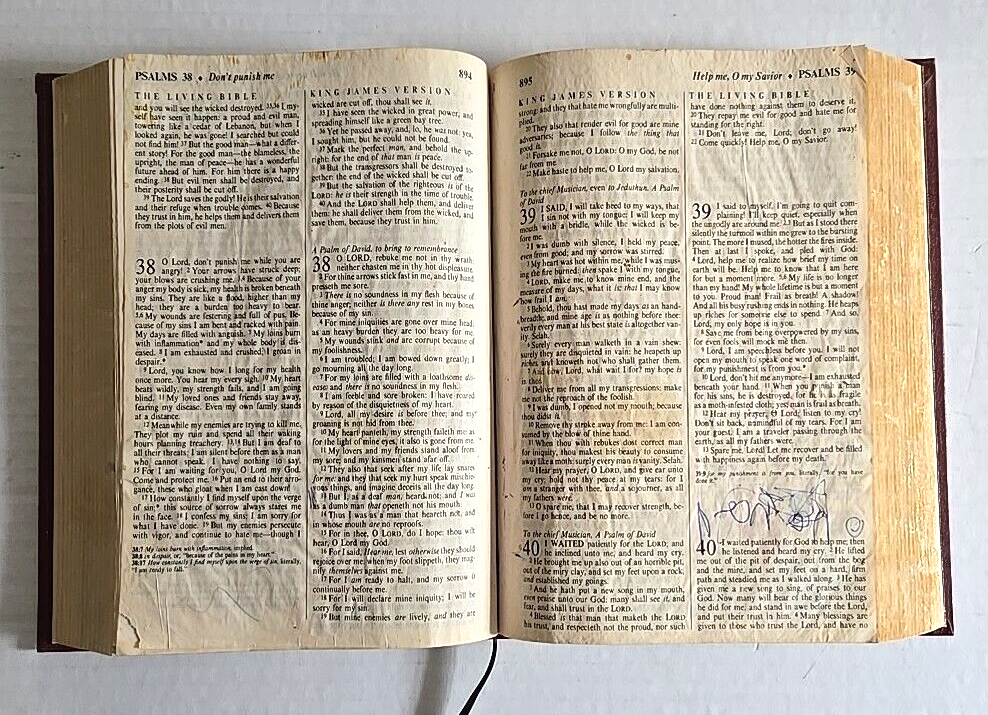 PSALMS 38 ◆ Don't punish me
894
THE LIVING BIBLE
and you will see the wicked destroyed. 35,36 I my-
self have seen it happen: a proud and evil man,
towering like a cedar of Lebanon, but when I
looked again, he was gone! I searched but could
not find him! 37 But the good man—what a differ-
ent story! For the good man—the blameless, the
upright, the man of peace—he has a wonderful
future ahead of him. For him there is a happy
ending. 38 But evil men shall be destroyed, and
their posterity shall be cut off.
39 The Lord saves the godly! He is their salvation
and their refuge when trouble comes. 40 Because
they trust in him, he helps them and delivers them
from the plots of evil men.
38 O Lord, don't punish me while you are
angry! 2 Your arrows have struck deep;
your blows are crushing me. 3,4 Because of your
anger my body is sick, my health is broken beneath
my sins. They are like a flood, higher than my
head; they are a burden too heavy to bear.
5,6 My wounds are festering and full of pus. Be-
cause of my sins I am bent and racked with pain.
My days are filled with anguish. 7 My loins burn
with inflammation* and my whole body is dis-
eased. 8 I am exhausted and crushed; I groan in
despair.*
9 Lord, you know how I long for my health
once more. You hear my every sigh. 10 My heart
beats wildly, my strength fails, and I am going
blind. 11 My loved ones and friends stay away,
fearing my disease. Even my own family stands
at a distance.
12 Meanwhile my enemies are trying to kill me.
They plot my ruin and spend all their waking
hours planning treachery. 13,14 But I am deaf to
all their threats; I am silent before them as a man
who cannot speak. I have nothing to say.
15 For I am waiting for you, O Lord my God.
Come and protect me. 16 Put an end to their arro-
gance, these who gloat when I am cast down!
17 How constantly I find myself upon the verge
of sin;* this source of sorrow always stares me
in the face. 18 I confess my sins; I am sorry for
what I have done. 19 But my enemies persecute
with vigor, and continue to hate me—though I
38:7 My loins burn with inflammation, implied.
38:8 in despair, or, "because of the pains in my heart."
38:17 How constantly I find myself upon the verge of sin, literally,
"I am ready to fall."
KING JAMES VERSION
wicked are cut off, thou shall see it.
35 I have seen the wicked in great power, and
spreading himself like a green bay tree.
36 Yet he passed away, and, lo, he was not: yea,
I sought him, but he could not be found.
37 Mark the perfect man, and behold the up-
right: for the end of that man is peace.
38 But the transgressors shall be destroyed to-
gether: the end of the wicked shall be cut off.
39 But the salvation of the righteous is of the
LORD: he is their strength in the time of trouble.
40 And the LORD shall help them, and deliver
them: he shall deliver them from the wicked, and
save them, because they trust in him.
A Psalm of David, to bring to remembrance
38 O LORD, rebuke me not in thy wrath:
neither chasten me in thy hot displeasure.
2 For thine arrows stick fast in me, and thy hand
presseth me sore.
3 There is no soundness in my flesh because of
thine anger; neither is there any rest in my bones
because of my sin.
4 For mine iniquities are gone over mine head:
as an heavy burden they are too heavy for me.
5 My wounds stink and are corrupt because of
my foolishness.
6 I am troubled; I am bowed down greatly; I
go mourning all the day long.
7 For my loins are filled with a loathsome dis-
ease and there is no soundness in my flesh.
8 I am feeble and sore broken: I have roared
by reason of the disquietness of my heart.
9 Lord, all my desire is before thee; and my
groaning is not hid from thee.
10 My heart panteth, my strength faileth me: as
for the light of mine eyes, it also is gone from me.
11 My lovers and my friends stand aloof from
my sore; and my kinsmen stand afar off.
12 They also that seek after my life lay snares
for me: and they that seek my hurt speak mischie-
vous things, and imagine deceits all the day long.
13 But I, as a deaf man, heard not; and I was
as a dumb man that openeth not his mouth.
14 Thus I was as a man that heareth not, and
in whose mouth are no reproofs.
15 For in thee, O LORD, do I hope: thou wilt
hear, O Lord my God.
16 For I said, Hear me, lest otherwise they should
rejoice over me: when my foot slippeth, they mag-
nify themselves against me.
17 For I am ready to halt, and my sorrow is
continually before me.
18 For I will declare mine iniquity; I will be
sorry for my sin.
19 But mine enemies are lively, and they are
895
Help me, O my Savior ◆ PSALMS 39
KING JAMES VERSION
strong: and they that hate me wrongfully are multi-
plied.
20 They also that render evil for good are mine
adversaries; because I follow the thing that
good is.
21 Forsake me not, O LORD: O my God, be not
far from me.
22 Make haste to help me, O Lord my salvation.
To the chief Musician, even to Jeduthun, A Psalm
of David
39 I SAID, I will take heed to my ways, that
I sin not with my tongue: I will keep my
mouth with a bridle, while the wicked is be-
fore me.
2 I was dumb with silence, I held my peace,
even from good; and my sorrow was stirred.
3 My heart was hot within me, while I was mus-
ing the fire burned: then spake I with my tongue,
4 LORD, make me to know mine end, and the
measure of my days, what it is; that I may know
how frail I am.
5 Behold, thou hast made my days as an hand-
breadth; and mine age is as nothing before thee:
verily every man at his best state is altogether van-
ity. Selah.
6 Surely every man walketh in a vain shew:
surely they are disquieted in vain: he heapeth up
riches, and knoweth not who shall gather them.
7 And now, Lord, what wait I for? my hope is
in thee.
8 Deliver me from all my transgressions: make
me not the reproach of the foolish.
9 I was dumb, I opened not my mouth; because
thou didst it.
10 Remove thy stroke away from me: I am con-
sumed by the blow of thine hand.
11 When thou with rebukes dost correct man
for iniquity, thou makest his beauty to consume
away like a moth: surely every man is vanity. Selah.
12 Hear my prayer, O LORD, and give ear unto
my cry; hold not thy peace at my tears: for I
am a stranger with thee, and a sojourner, as all
my fathers were.
13 O spare me, that I may recover strength, be-
fore I go hence, and be no more.
To the chief Musician, A Psalm of David
40 I WAITED patiently for the LORD; and
he inclined unto me, and heard my cry.
2 He brought me up also out of an horrible pit,
out of the miry clay, and set my feet upon a rock,
and established my goings.
3 And he hath put a new song in my mouth,
even praise unto our God: many shall see it, and
fear, and shall trust in the LORD.
4 Blessed is that man that maketh the LORD
his trust, and respecteth not the proud, nor such
THE LIVING BIBLE
have done nothing against them to deserve it.
20 They repay me evil for good and hate me for
standing for the right.
21 Don't leave me, Lord; don't go away!
22 Come quickly! Help me, O my Savior.
39 I said to myself, I'm going to quit com-
plaining! I'll keep quiet, especially when
the ungodly are around me. 2,3 But as I stood there
silently the turmoil within me grew to the bursting
point. The more I mused, the hotter the fires inside.
Then at last I spoke, and pled with God:
4 Lord, help me to realize how brief my time on
earth will be. Help me to know that I am here
for but a moment more. 5,6 My life is no longer
than my hand! My whole lifetime is but a moment
to you. Proud man! Frail as breath! A shadow!
And all his busy rushing ends in nothing. He heaps
up riches for someone else to spend. 7 And so,
Lord, my only hope is in you.
8 Save me from being overpowered by my sins,
for even fools will mock me then.
9 Lord, I am speechless before you. I will not
open my mouth to speak one word of complaint,
for my punishment is from you.*
10 Lord, don't hit me anymore—I am exhausted
beneath your hand. 11 When you punish a man
for his sins, he is destroyed, for he is as fragile
as a moth-infested cloth; yes, man is frail as breath.
12 Hear my prayer, O Lord; listen to my cry!
Don't sit back, unmindful of my tears. For I am
your guest. I am a traveler passing through the
earth, as all my fathers were.
13 Spare me, Lord! Let me recover and be filled
with happiness again before my death.
39:9 for my punishment is from you, literally, "for you have
done it."
40 I waited patiently for God to help me; then
he listened and heard my cry. 2 He lifted
me out of the pit of despair, out from the bog
and the mire, and set my feet on a hard, firm
path and steadied me as I walked along. 3 He has
given me a new song to sing, of praises to our
God. Now many will hear of the glorious things
he did for me, and stand in awe before the Lord,
and put their trust in him. 4 Many blessings are
given to those who trust the Lord, and have no